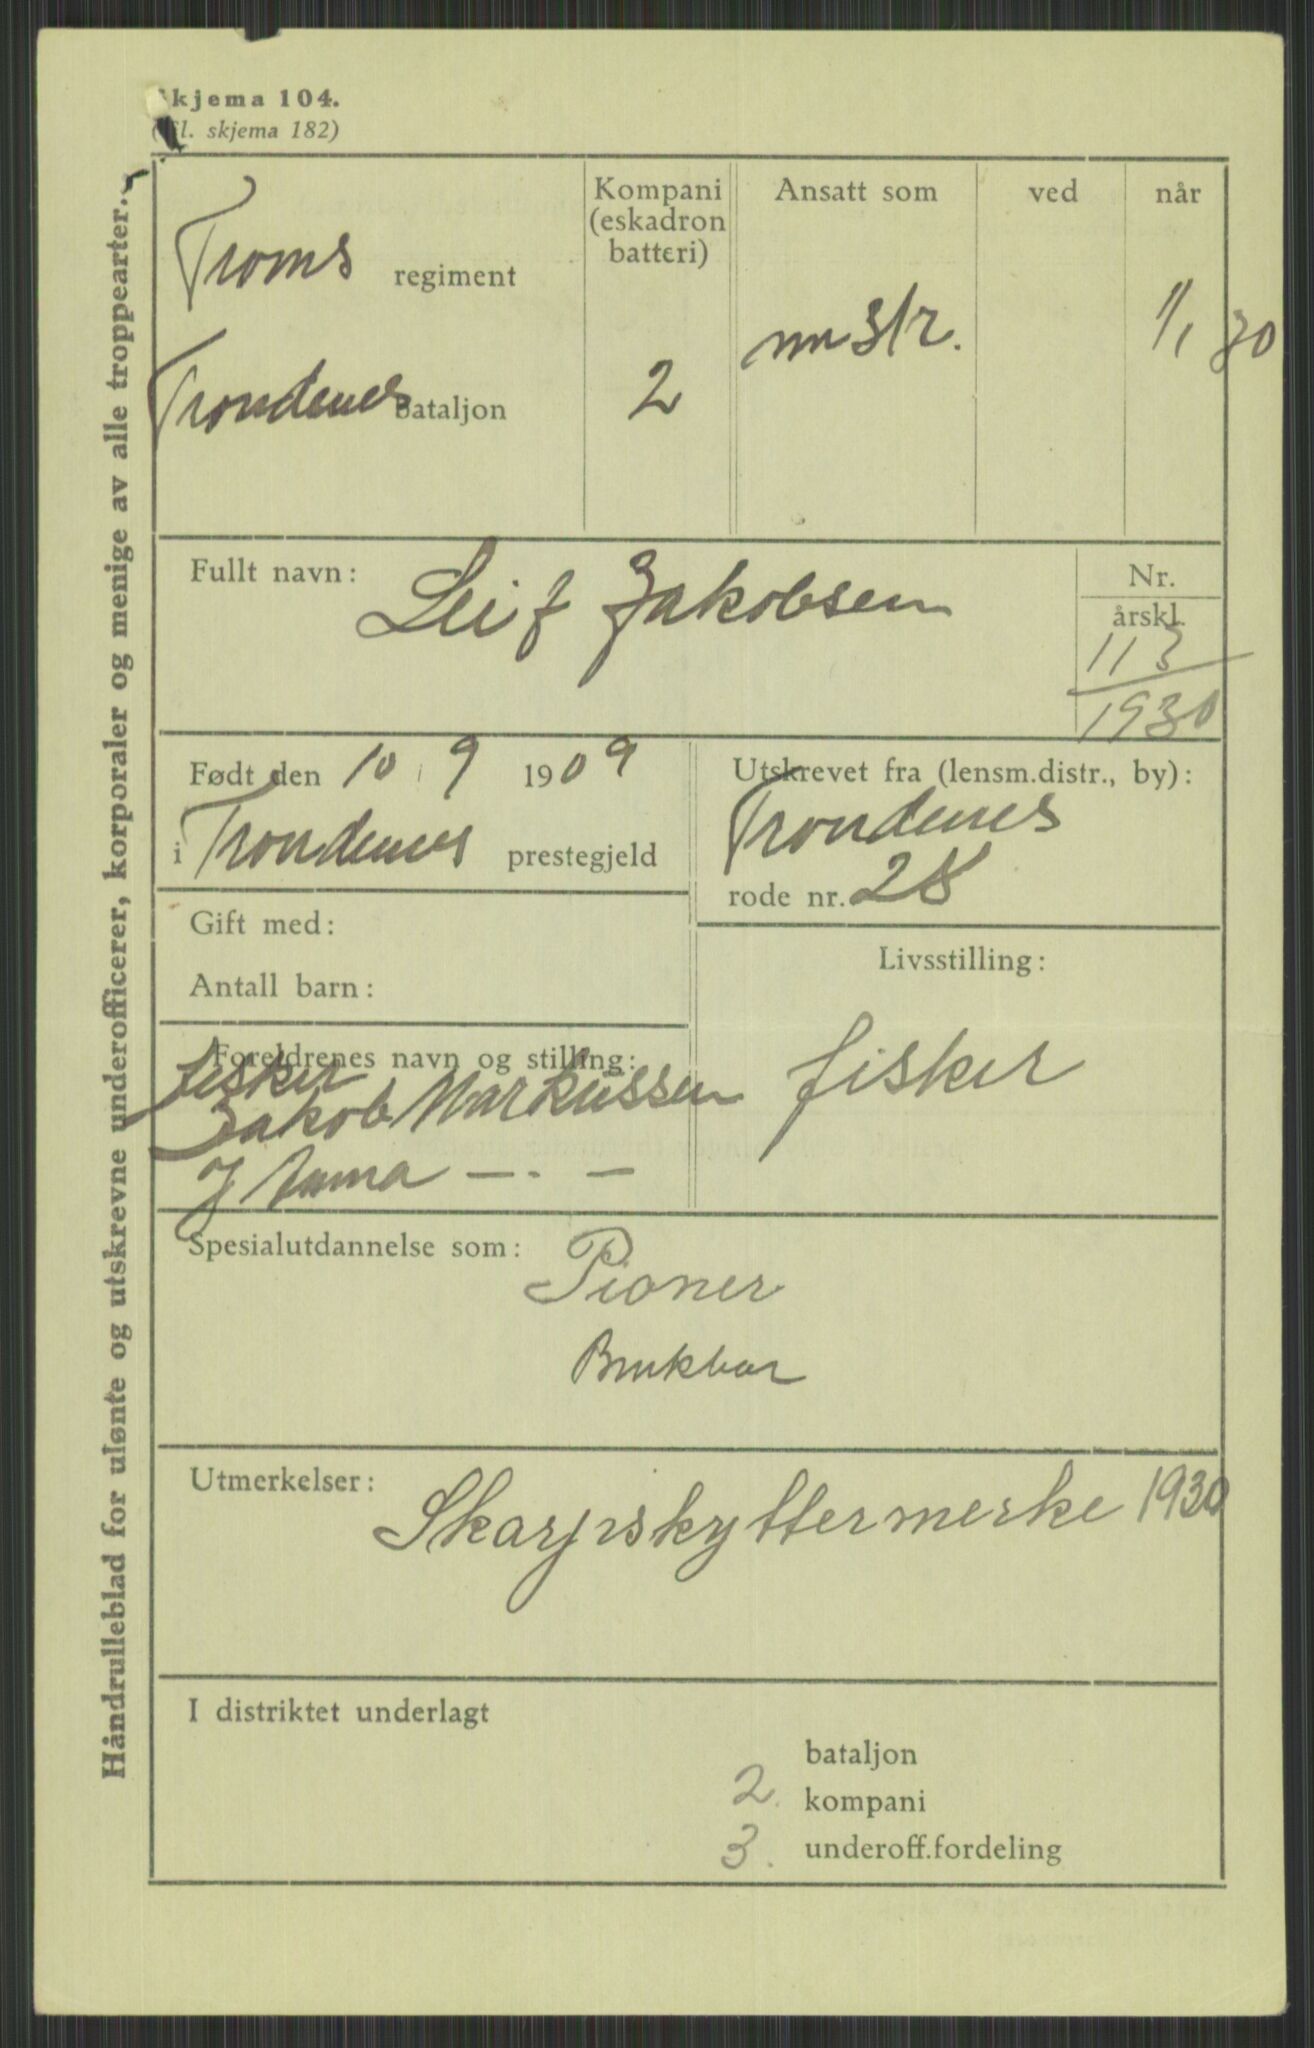 kjema 104.
l. skjema 182)
Håndrulleblad for ulønte og utskrevne underofficerer, korporaler og menige av alle troppearter.
Troms regiment
Kompani
(eskadron
batteri)
Ansatt som
ved
når
1/1 30
Trondenes bataljon
2
Fullt navn: Leif Jakobsen
Nr.
årskl.
113
1930
Født den 10 / 9 1909
i Trondenes prestegjeld
Utskrevet fra (lensm.distr., by):
Trondenes
rode nr. 28
Gift med:
Antall barn:
Livsstilling:
fisker
Foreldrenes navn og stilling:
fisker
Jakob Markussen
Anna — . —
Spesialutdannelse som: Pioner
Brukbar
Utmerkelser: Skarpskyttermerke 1930
I distriktet underlagt
bataljon
2. kompani
3. underoff.fordeling